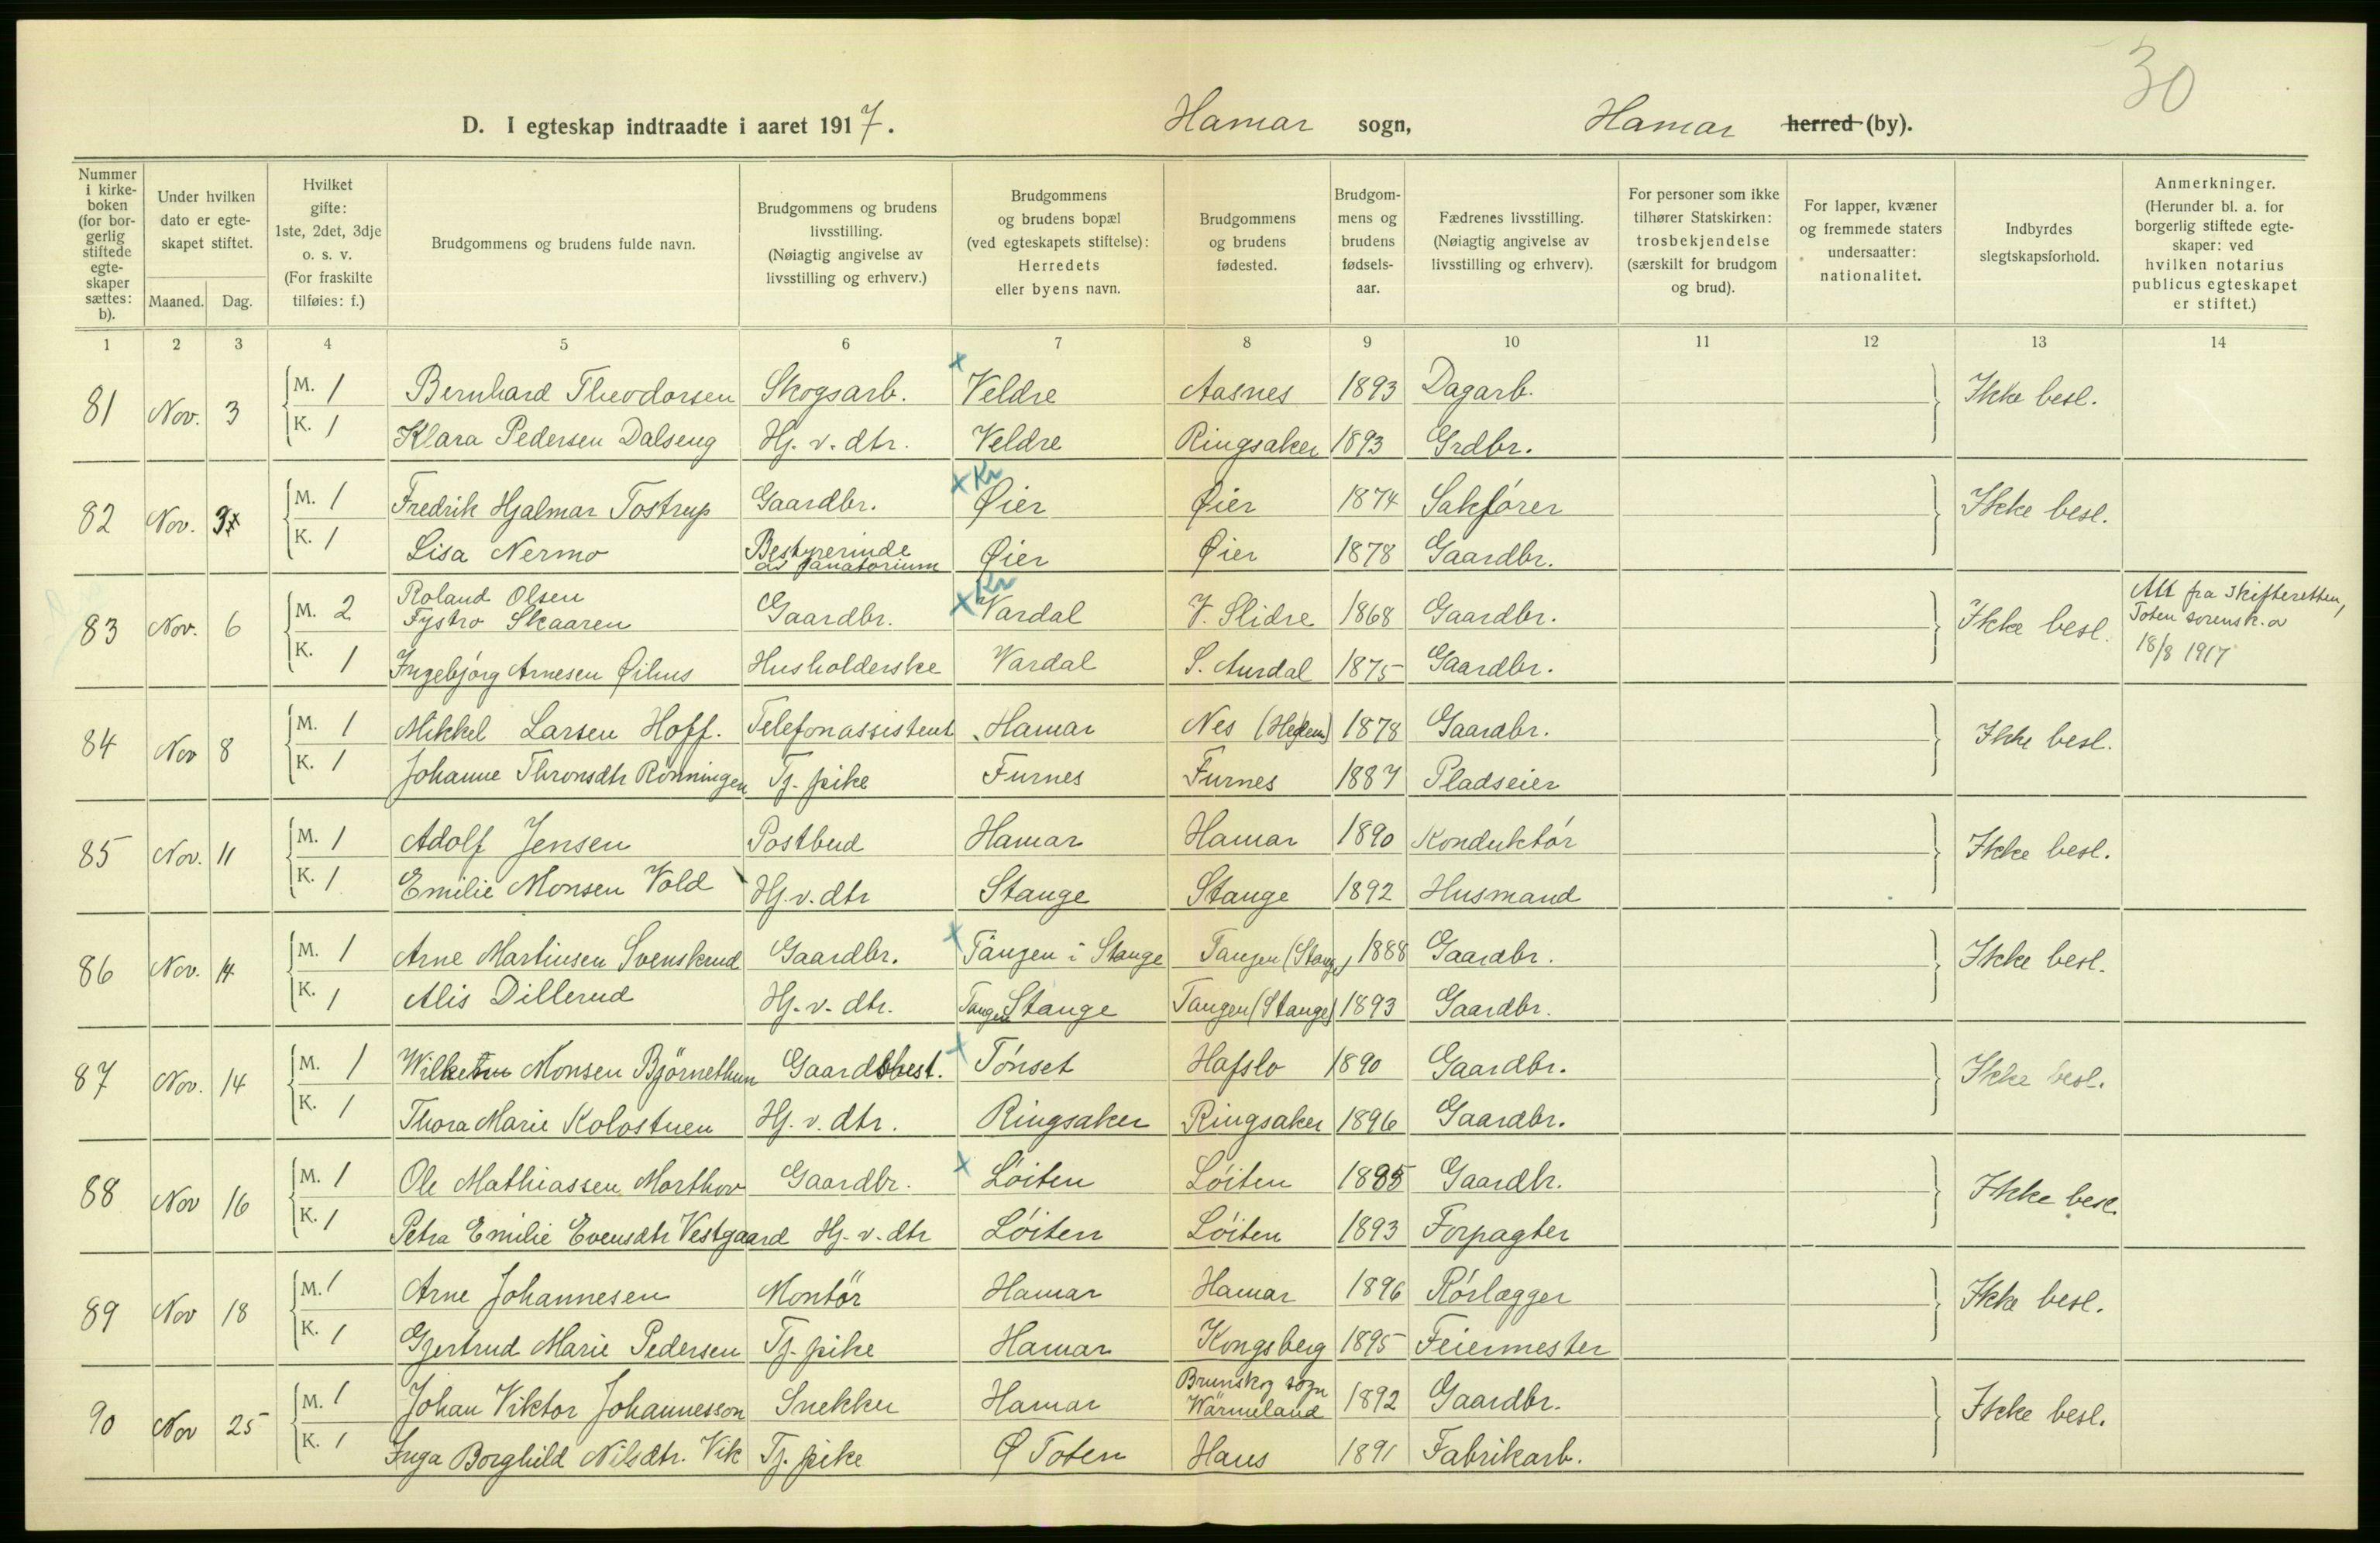 30
D. I egteskap indtraadte i aaret 1917. Hamar sogn, Hamar herred (by).
Nummer i kirke-boken (for bor-gerlig stiftede egte-skaper sættes: b). Under hvilken dato er egte-skapet stiftet. Maaned. Dag. Hvilket gifte: 1ste, 2det, 3dje o. s. v. (For fraskilte tilføies: f.) Brudgommens og brudens fulde navn. Brudgommens og brudens livsstilling. (Nøiagtig angivelse av livsstilling og erhverv.) Brudgommens og brudens bopæl (ved egteskapets stiftelse): Herredets eller byens navn. Brudgommens og brudens fødested. Brudgom-mens og brudens fødsels-aar. Fædrenes livsstilling. (Nøiagtig angivelse av livsstilling og erhverv). For personer som ikke tilhører Statskirken: trosbekjendelse (særskilt for brudgom og brud). For lapper, kvæner og fremmede staters undersaatter: nationalitet. Indbyrdes slegtskapsforhold. Anmerkninger. (Herunder bl. a. for borgerlig stiftede egte-skaper: ved hvilken notarius publicus egteskapet er stiftet.)
1 2 3 4 5 6 7 8 9 10 11 12 13 14
81 Nov. 3 M. 1 Bernhard Theodorsen Skogsarb. x Veldre Aasnes 1893 Dagarb. Ikke besl.
K. 1 Klara Pedersen Dalseng Hj. v. dtr. Veldre Ringsaker 1893 Grdbr.
82 Nov. 3 M. 1 Fredrik Hjalmar Tostrup Gaardbr. x Kr Øier Øier 1874 Sakfører Ikke besl.
K. 1 Lisa Nermo Bestyrerinde av sanatorium Øier Øier 1878 Gaardbr.
83 Nov. 6 M. 2 Roland Olsen Fystro Skaaren Gaardbr. x Kr Vardal V. Slidre 1868 Gaardbr. Ikke besl. Att fra Skifteretten, Toten sorensk. a 18/8 1917
K. 1 Ingebjørg Arnesen Øihus Husholderske Vardal S. Aurdal 1875 Gaardbr.
84 Nov 8 M. 1 Mikkel Larsen Hoff. Telefonassistent Hamar Nes (Hedem) 1878 Gaardbr. Ikke besl.
K. 1 Johanne Thronsdtr Rønningen Tj. pike Furnes Furnes 1887 Pladseier
85 Nov. 11 M. 1 Adolf Jensen Postbud Hamar Hamar 1890 Konduktør Ikke besl.
K. 1 Emilie Monsen Vold Hj. v. dtr Stange Stange 1892 Husmand
86 Nov. 14 M. 1 Arne Martinsen Svenskrud Gaardbr. x Tangen i Stange Tangen (Stange) 1888 Gaardbr. Ikke besl.
K. 1 Alis Dillerud Hj. v. dtr. Tangen Stange Tangen (Stange) 1893 Gaardbr.
87 Nov. 14 M. 1 Wilhelm Monsen Björnethun Gaardsbest. x Tønset Hafslo 1890 Gaardbr. Ikke besl.
K. 1 Thora Marie Kolostuen Hj. v. dtr. Ringsaker Ringsaker 1896 Gaardbr.
88 Nov 16 M. 1 Ole Mathiassen Morthov Gaardbr. x Løiten Løiten 1885 Gaardbr. Ikke besl.
K. 1 Petra Emilie Evensdtr Vestgaard Hj. v. dtr Løiten Løiten 1893 Forpagter
89 Nov 18 M. 1 Arne Johannesen Montör Hamar Hamar 1896 Rørlægger Ikke besl.
K. 1 Gjertrud Marie Pedersen Tj. pike Hamar Kongsberg 1895 Feiermester
90 Nov 25 M. 1 Johan Viktor Johannesson Snekker Hamar Brunskog sogn Wärmeland 1892 Gaardbr. Ikke besl.
K. 1 Inga Borghild Nilsdtr. Vik Tj. pike Ø Toten Haus 1891 Fabrikarb.